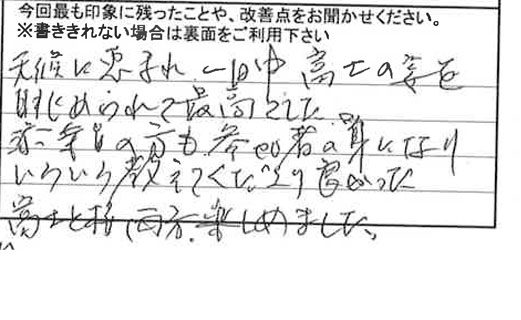 今回最も印象に残ったことや、改善点をお聞かせください。
※書ききれない場合は裏面をご利用下さい
天候に恵まれ、一日中 富士の姿を
眺められて最高でした
乗務員の方も、参加者の身になり
いろいろ教えてくださり良かった
富士と桜、両方楽しめました。